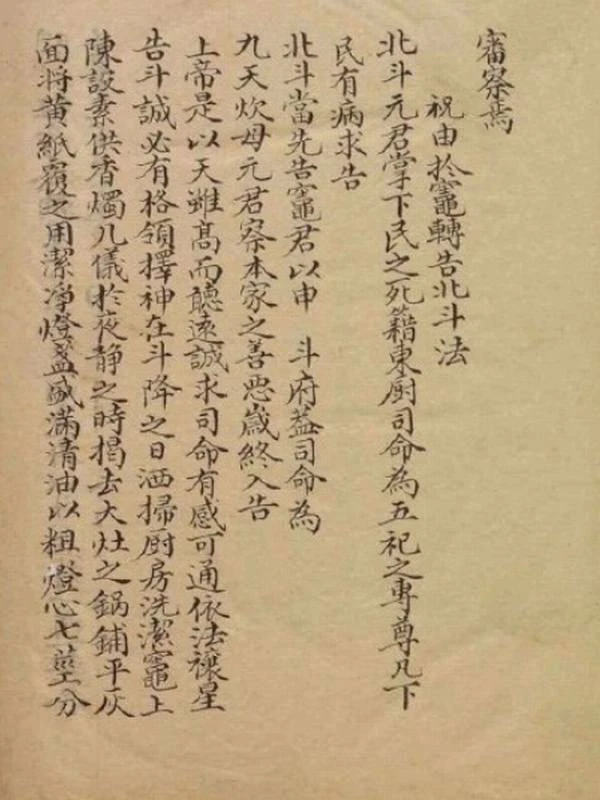 審察焉
祝由於竈轉告北斗法
北斗元君掌下民之死籍東厨司命為五祀之專尊凡下
民有病求告
北斗當先告竈君以申 斗府葢司命為
九天炊母元君察本家之善惡歲終入告
上帝是以天雖髙而聽遠誠求司命有感可通依法禳星
告斗誠必有格領擇神在斗降之日洒掃厨房洗潔竈上
陳設素供香燭几儀於夜静之時揭去大灶之鍋鋪平灰
面将黄紙覆之用潔净燈盞盛滿清油以粗燈心七莖分